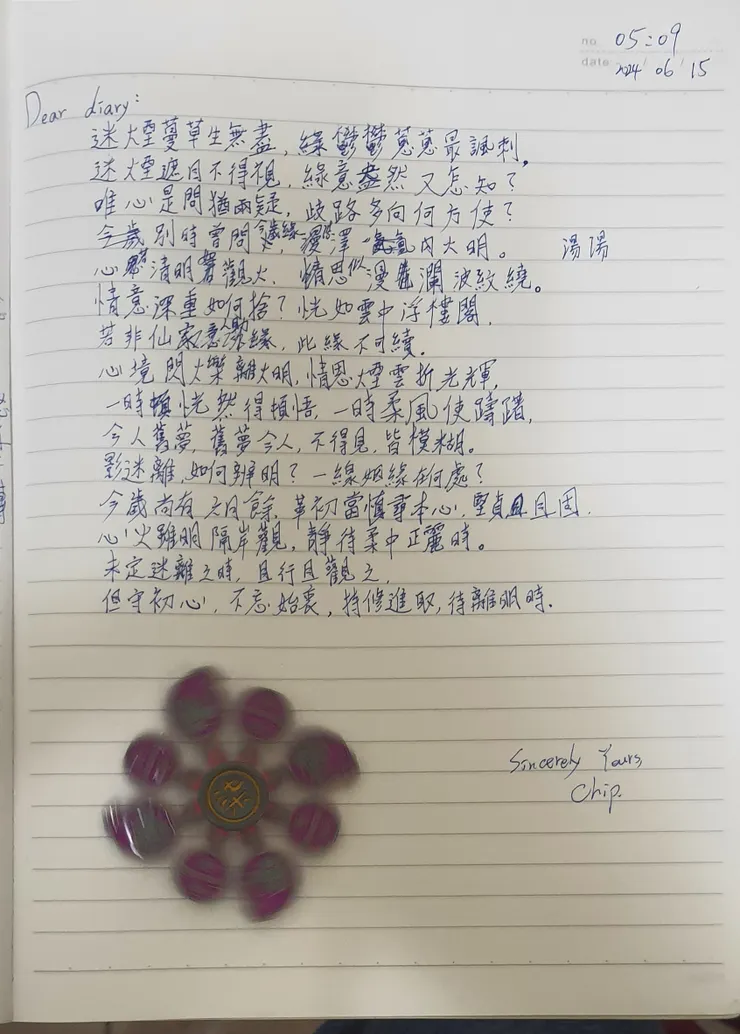 no 05:09
date 2024/06/15
Dear diary:
迷煙蔓草生無盡，綠鬱鬱蔥蔥最諷刺。
迷煙遮目不得視，綠意盎然又怎知？
唯心是問猶兩疑，歧路多向何方使？
今歲別時曾問，澤內大明。 湯陽
心清明若觀火，情思似漫瀾波紋繞。
情意深重如何捨？恍如雲中浮樓閣，
若非仙家意緣，此緣不可續。
心境閃爍離大明，情思煙雲折光輝，
一時恍然得頓悟，一時柔風使躊躇，
今人舊夢，舊夢今人，不得見，皆模糊。
影迷離，如何辨明？一線姻緣在何處？
今歲尚有六月餘，革初當慎尋本心，堅貞且固，
心火雖明隔岸觀，靜待柔中正麗時。
未定迷離之時，且行且觀之，
但守初心，不忘始衷，持修進取，待離明時．
Sincerely Yours,
Chip.